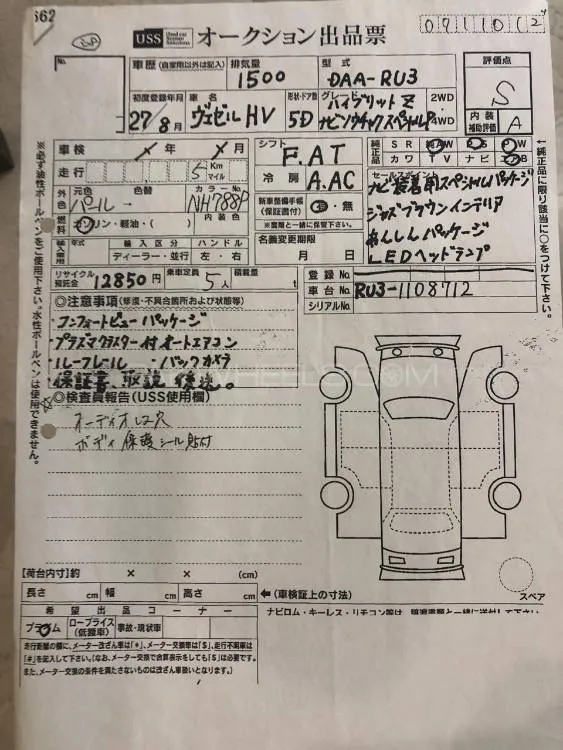 562
USS Used car System Solutions オークション出品票
0911012
No.
車歴 (自家用以外は記入) 排気量 型式 評価点
1500 DAA-RU3 S
初度登録年月 車名 形状・ドア数 グレード 2WD 内装補助評価
27/8月 ヴェゼルHV 5D ハイブリットZ 4WD A
車検 年 月 シフト F.AT 純正品 SR AW PS PW
カワ TV ナビ エアB
走行 5 Km マイル 冷房 A.AC
外色 元色 色替 カラーNo. NH788P
パール 新車整備手帳(保証書付) 有・無
※書類と一緒に保管下さい。
燃料 ガソリン・軽油・( ) 内装色
輸入車 年式 輸入区分 ハンドル 名義変更期限
ディーラー・並行 左・右 月 日
セールスポイント
ナビ装着用スペシャルパッケージ
ジャズブラウンインテリア
あんしんパッケージ
LEDヘッドランプ
リサイクル預託金 12850円 乗車定員 5人 積載量 t
登録No.
車台No. RU3-1108712
シリアルNo.
◎注意事項(修復・不具合箇所および状態等)
・コンフォートビューパッケージ
・プラズマクラスター付オートエアコン
・ルーフレール ・バックカメラ
保証書、取説 後送。
◎検査員報告(USS使用欄)
オーディオレス穴
ボディ保護シール貼付
※必ず油性ボールペンをご使用下さい。水性ボールペンは使用できません。
←純正品に限り該当に○をつけて下さい。
【荷台内寸】約 × × (cm)
長さ cm 幅 cm 高さ cm ←(車検証上の寸法)
スペア
希望出品コーナー
プラム ロープライス(低額車) 事故・現状車
ナビロム・キーレス・リモコン等は、譲渡書類と一緒に送付して下さい。
走行距離の欄に、メーター改ざん車は「*」、メーター交換車は「$」、走行不明車は
「#」を記入して下さい。(なお、メーター交換で合算表示をしても「$」は必要です。
また、メーター交換の条件を満たさないものは改ざん車扱いとなります。)